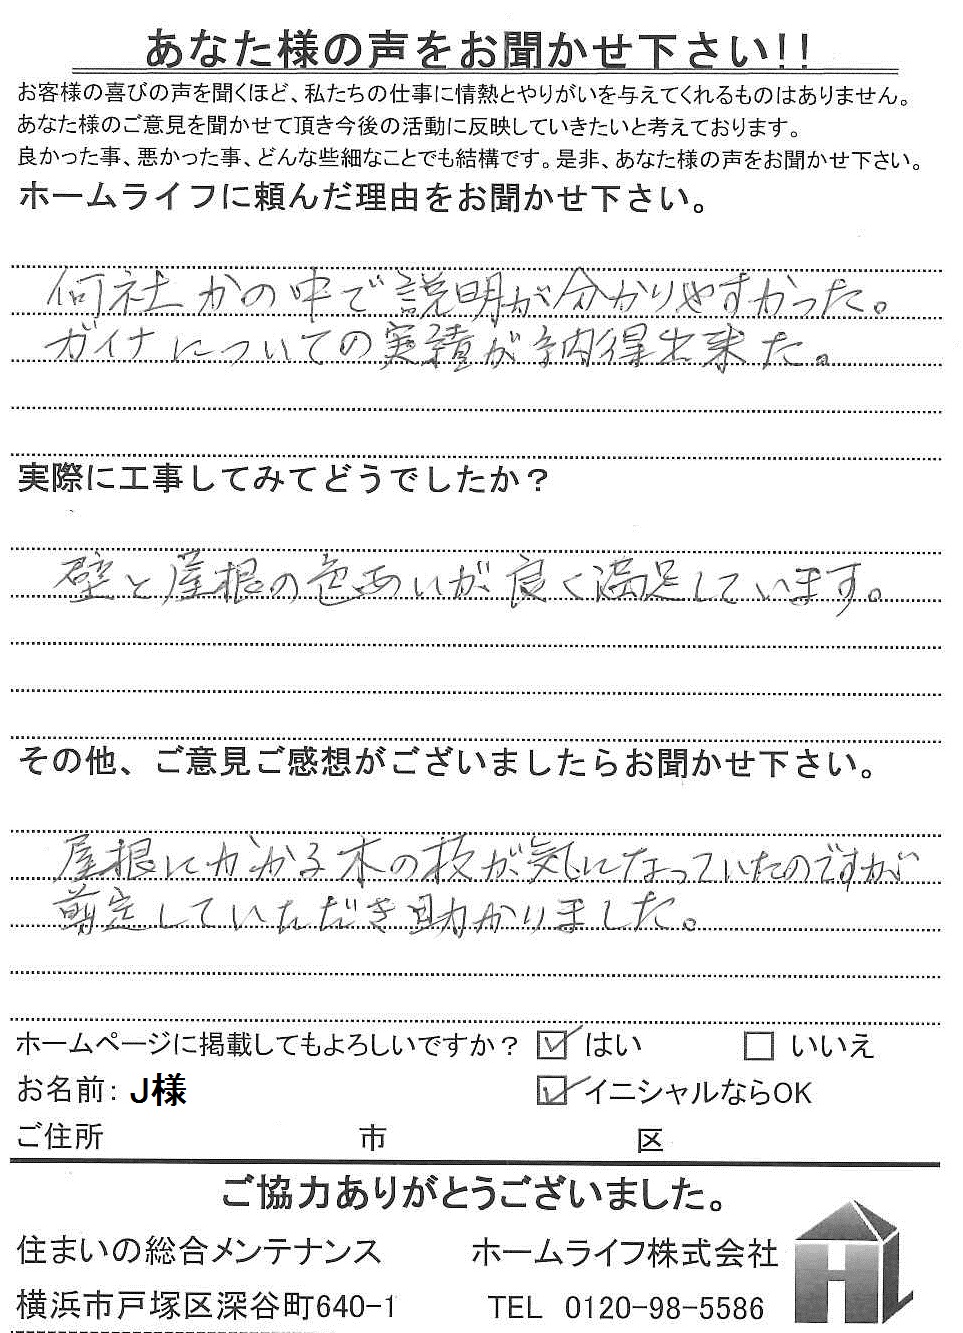 あなた様の声をお聞かせ下さい!!
お客様の喜びの声を聞くほど、私たちの仕事に情熱とやりがいを与えてくれるものはありません。
あなた様のご意見を聞かせて頂き今後の活動に反映していきたいと考えております。
良かった事、悪かった事、どんな些細なことでも結構です。是非、あなた様の声をお聞かせ下さい。
ホームライフに頼んだ理由をお聞かせ下さい。
何社かの中で説明が分かりやすかった。
ガイナについての実績が納得出来た。
実際に工事してみてどうでしたか?
壁と屋根の色あいが良く満足しています。
その他、ご意見ご感想がございましたらお聞かせ下さい。
屋根にかかる木の枝が気になっていたのですが
剪定していただき助かりました。
ホームページに掲載してもよろしいですか? はい いいえ
お名前: J様 イニシャルならOK
ご住所 市 区
ご協力ありがとうございました。
住まいの総合メンテナンス ホームライフ株式会社
横浜市戸塚区深谷町640-1 TEL 0120-98-5586
HL